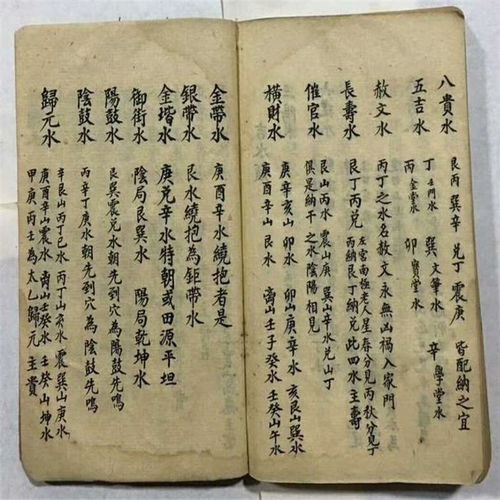 八貴水 艮丙 巽辛 兑丁 震庚 皆配納之宜
五吉水 丁壬門水 巽文筆水 辛學堂水
丙金堂水 卯寳堂水
赦文水 丙丁之水名赦文水無凶禍入家門
長壽水 艮丁丙兑 左宫南極老人星春分見丙秋分見丁
丙納艮丁納兑此四水主壽
催官水 艮山丙水 震山庚水 巽山辛水兑山丁
俱是納干之水陰陽相見
横財水 庚辛亥山卯水 卯山庚辛水 亥艮山巽水
庚酉辛山艮水 离山壬子癸水 壬癸山午水
金帶水 庚酉辛水繞抱者是
銀帶水 艮水繞抱為鉅帶水
金堦水 庚兑辛水特朝或田源平坦
御街水 陰局艮巽水 陽局乾坤水
陽鼓水 艮巽震兑水朝先到穴為陽鼓先鳴
陰鼓水 丙辛丁庚水朝先到穴為陰鼓先鳴
歸元水 辛艮山丙丁巳水 丙丁山亥水 震巽山庚水
庚酉辛山震水 离山壬癸水 壬癸山坤水
甲庚丙壬為太乙歸元 主貴